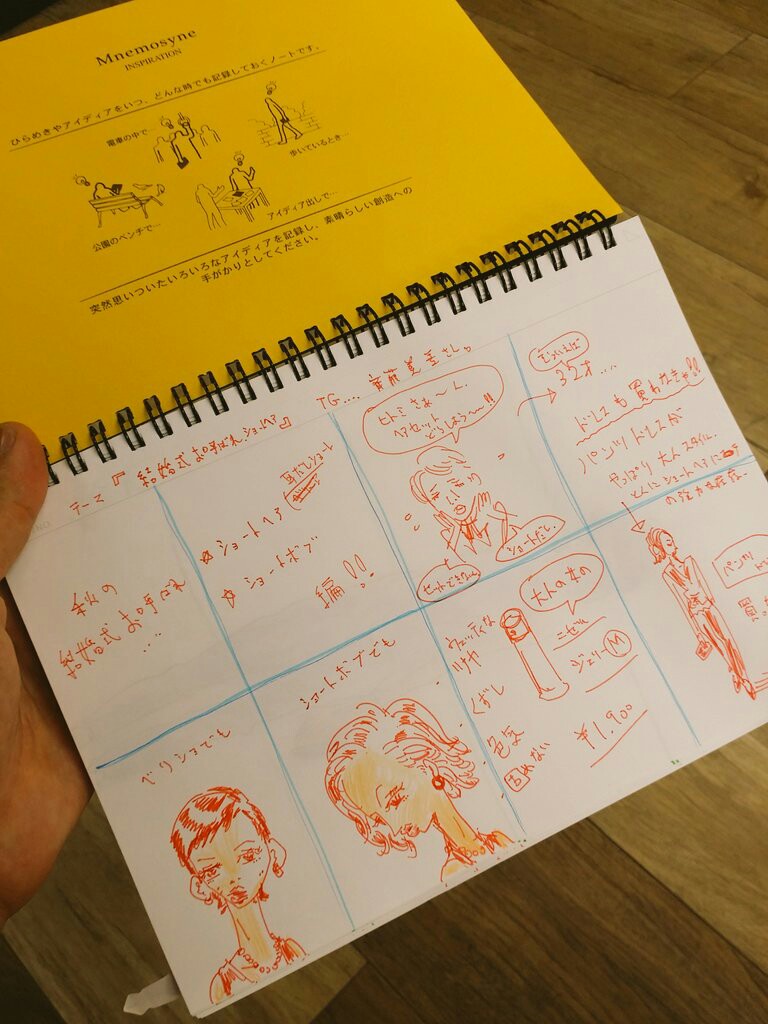 Mnemosyne
INSPIRATION
ひらめきやアイディアをいつ、どんな時でも記録しておくノートです。
電車の中で
歩いているとき…
公園のベンチで…
アイディア出しで…
突然思いついたいろいろなアイディアを記録し、素晴らしい創造への
手がかりとしてください。
テーマ『結婚式お呼ばれショートヘア』
TG....
秋の
結婚式お呼ばれ
....
☆ショートヘア
☆ショートボブ
編!!
ヒトミさぁ〜ん
ヘアセット
どうしよう〜!!
ショートだし
32才....
ドレスも買わなきゃ!!
パンツドレスが
やっぱり大人スタイル。
とくにショートヘアに
ベリショでも
ショートボブでも
ウェッティな
ツヤ
くずし
色気
固めない
大人の女の
ニゼル
ジェリーM
¥1,900
パンツ